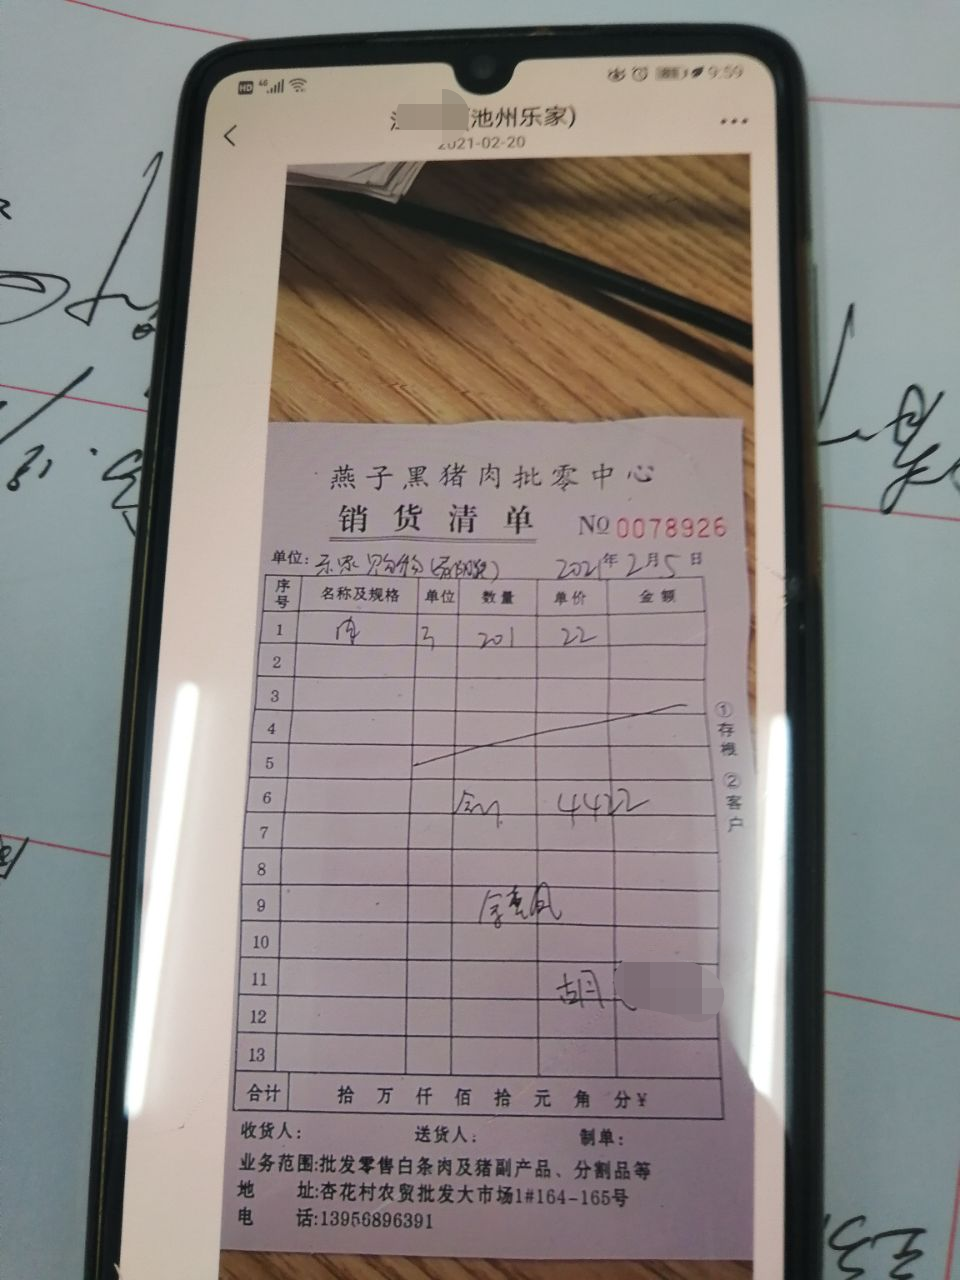 HD 4G 9:59
(池州乐家)
2021-02-20
燕子黑猪肉批零中心
销货清单 No 0078926
单位: 乐家购物 2021年2月5日
序号 名称及规格 单位 数量 单价 金额
1 肉 201 22
2
3
4
5
6 4422
7
8
9
10
11 胡
12
13
①存根 ②客户
合计 拾 万 仟 佰 拾 元 角 分¥
收货人: 送货人: 制单:
业务范围:批发零售白条肉及猪副产品、分割品等
地 址:杏花村农贸批发大市场1#164-165号
电 话:13956896391